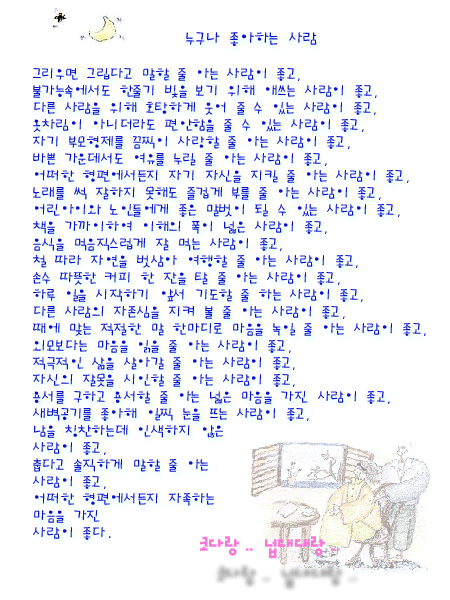 누구나 좋아하는 사람
그리우면 그립다고 말할 줄 아는 사람이 좋고,
불가능속에서도 한줄기 빛을 보기 위해 애쓰는 사람이 좋고,
다른 사람을 위해 호탕하게 웃어 줄 수 있는 사람이 좋고,
옷차림이 아니더라도 편안함을 줄 수 있는 사람이 좋고,
자기 부모형제를 끔찍이 사랑할 줄 아는 사람이 좋고,
바쁜 가운데서도 여유를 누릴 줄 아는 사람이 좋고,
어떠한 형편에서든지 자기 자신을 지킬 줄 아는 사람이 좋고,
노래를 썩 잘하지 못해도 즐겁게 부를 줄 아는 사람이 좋고,
어린아이와 노인들에게 좋은 말벗이 될 수 있는 사람이 좋고,
책을 가까이하여 이해의 폭이 넓은 사람이 좋고,
음식을 먹음직스럽게 잘 먹는 사람이 좋고,
철 따라 자연을 벗삼아 여행할 줄 아는 사람이 좋고,
손수 따뜻한 커피 한 잔을 탈 줄 아는 사람이 좋고,
하루 일을 시작하기 앞서 기도할 줄 하는 사람이 좋고,
다른 사람의 자존심을 지켜 볼 줄 아는 사람이 좋고,
때에 맞는 적절한 말 한마디로 마음을 녹일 줄 아는 사람이 좋고,
외모보다는 마음을 읽을 줄 아는 사람이 좋고,
적극적인 삶을 살아갈 줄 아는 사람이 좋고,
자신의 잘못을 시인할 줄 아는 사람이 좋고,
용서를 구하고 용서할 줄 아는 넓은 마음을 가진 사람이 좋고,
새벽공기를 좋아해 일찍 눈을 뜨는 사람이 좋고,
남을 칭찬하는데 인색하지 않은
사람이 좋고,
춥다고 솔직하게 말할 줄 아는
사람이 좋고,
어떠한 형편에서든지 자족하는
마음을 가진
사람이 좋다.
코다랑.. 넙대대랑..